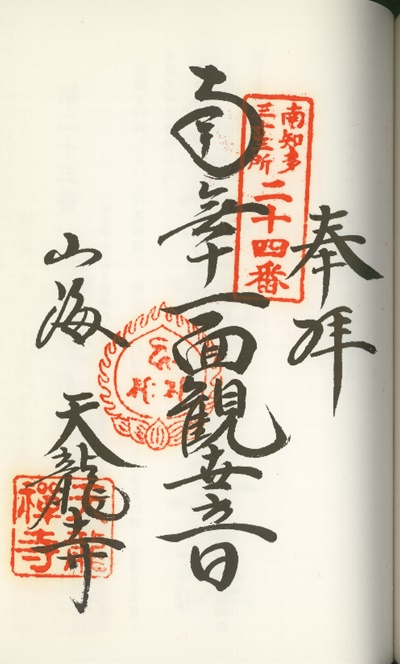 奉拝
南知多
三十三所
二十四番
南無十一面観世音
山海 天龍寺
天龍
禅寺